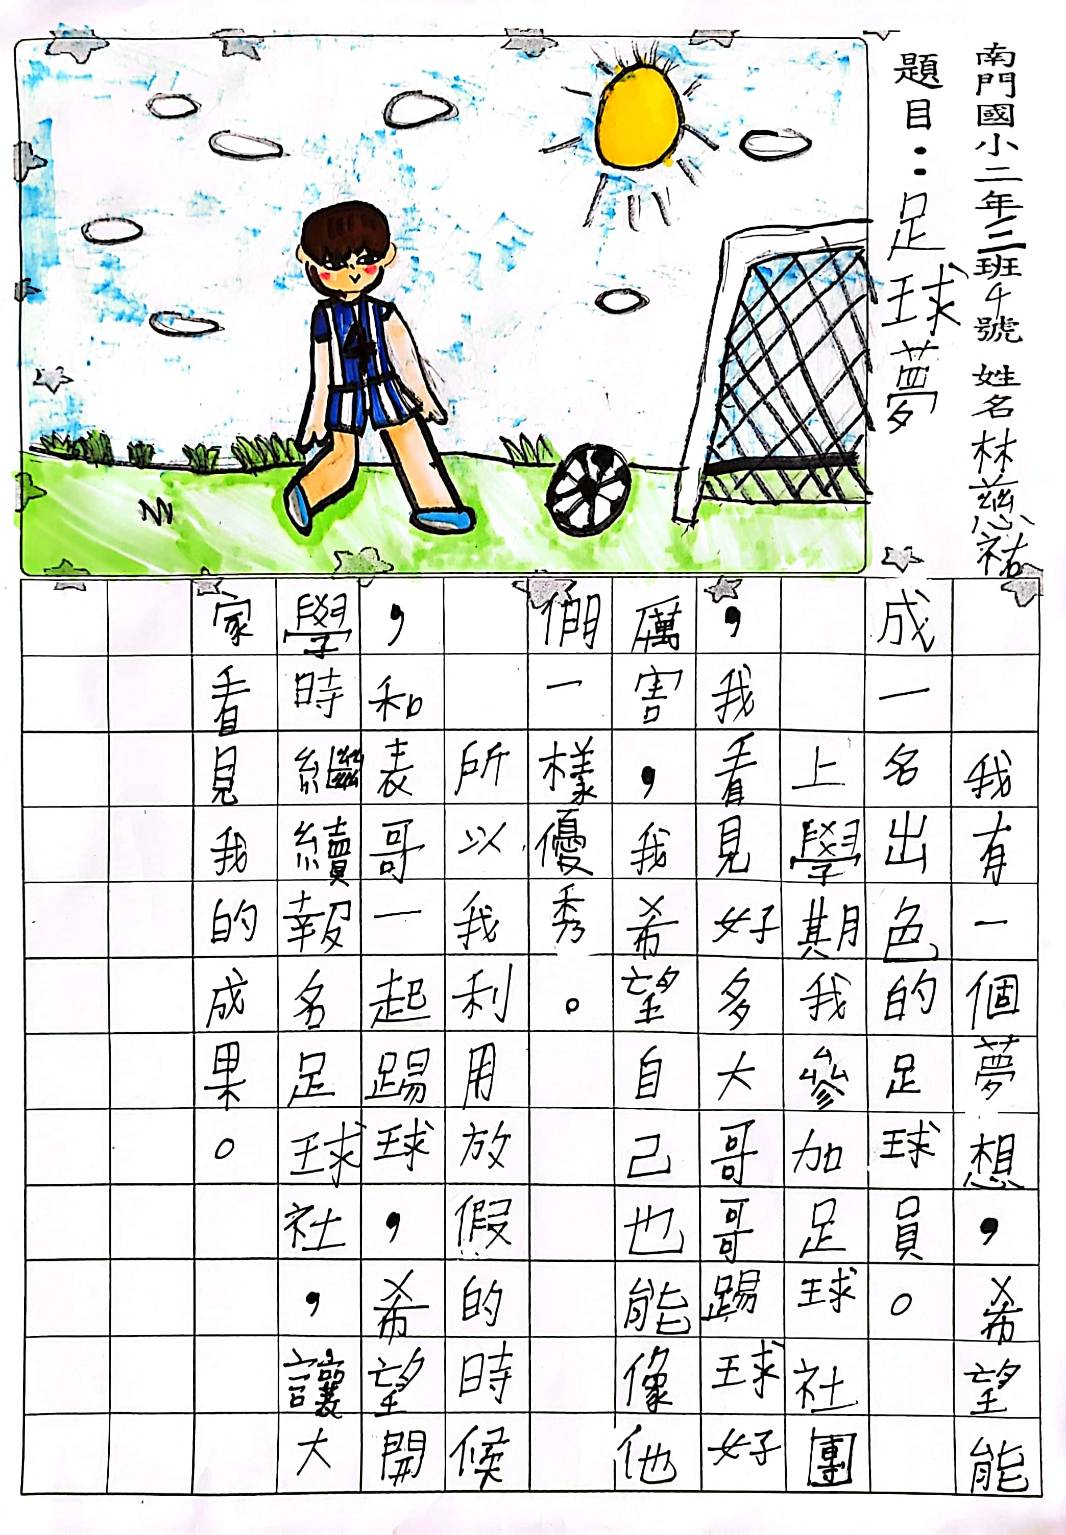 南門國小二年三班4號 姓名林慈祐
題目：足球夢
我有一個夢想，希望能
成一名出色的足球員。
上學期我參加足球社團
，我看見好多大哥哥踢球好
厲害，我希望自己也能像他
們一樣優秀。
所以我利用放假的時候
，和表哥一起踢球，希望開
學時繼續報名足球社，讓大
家看見我的成果。
4